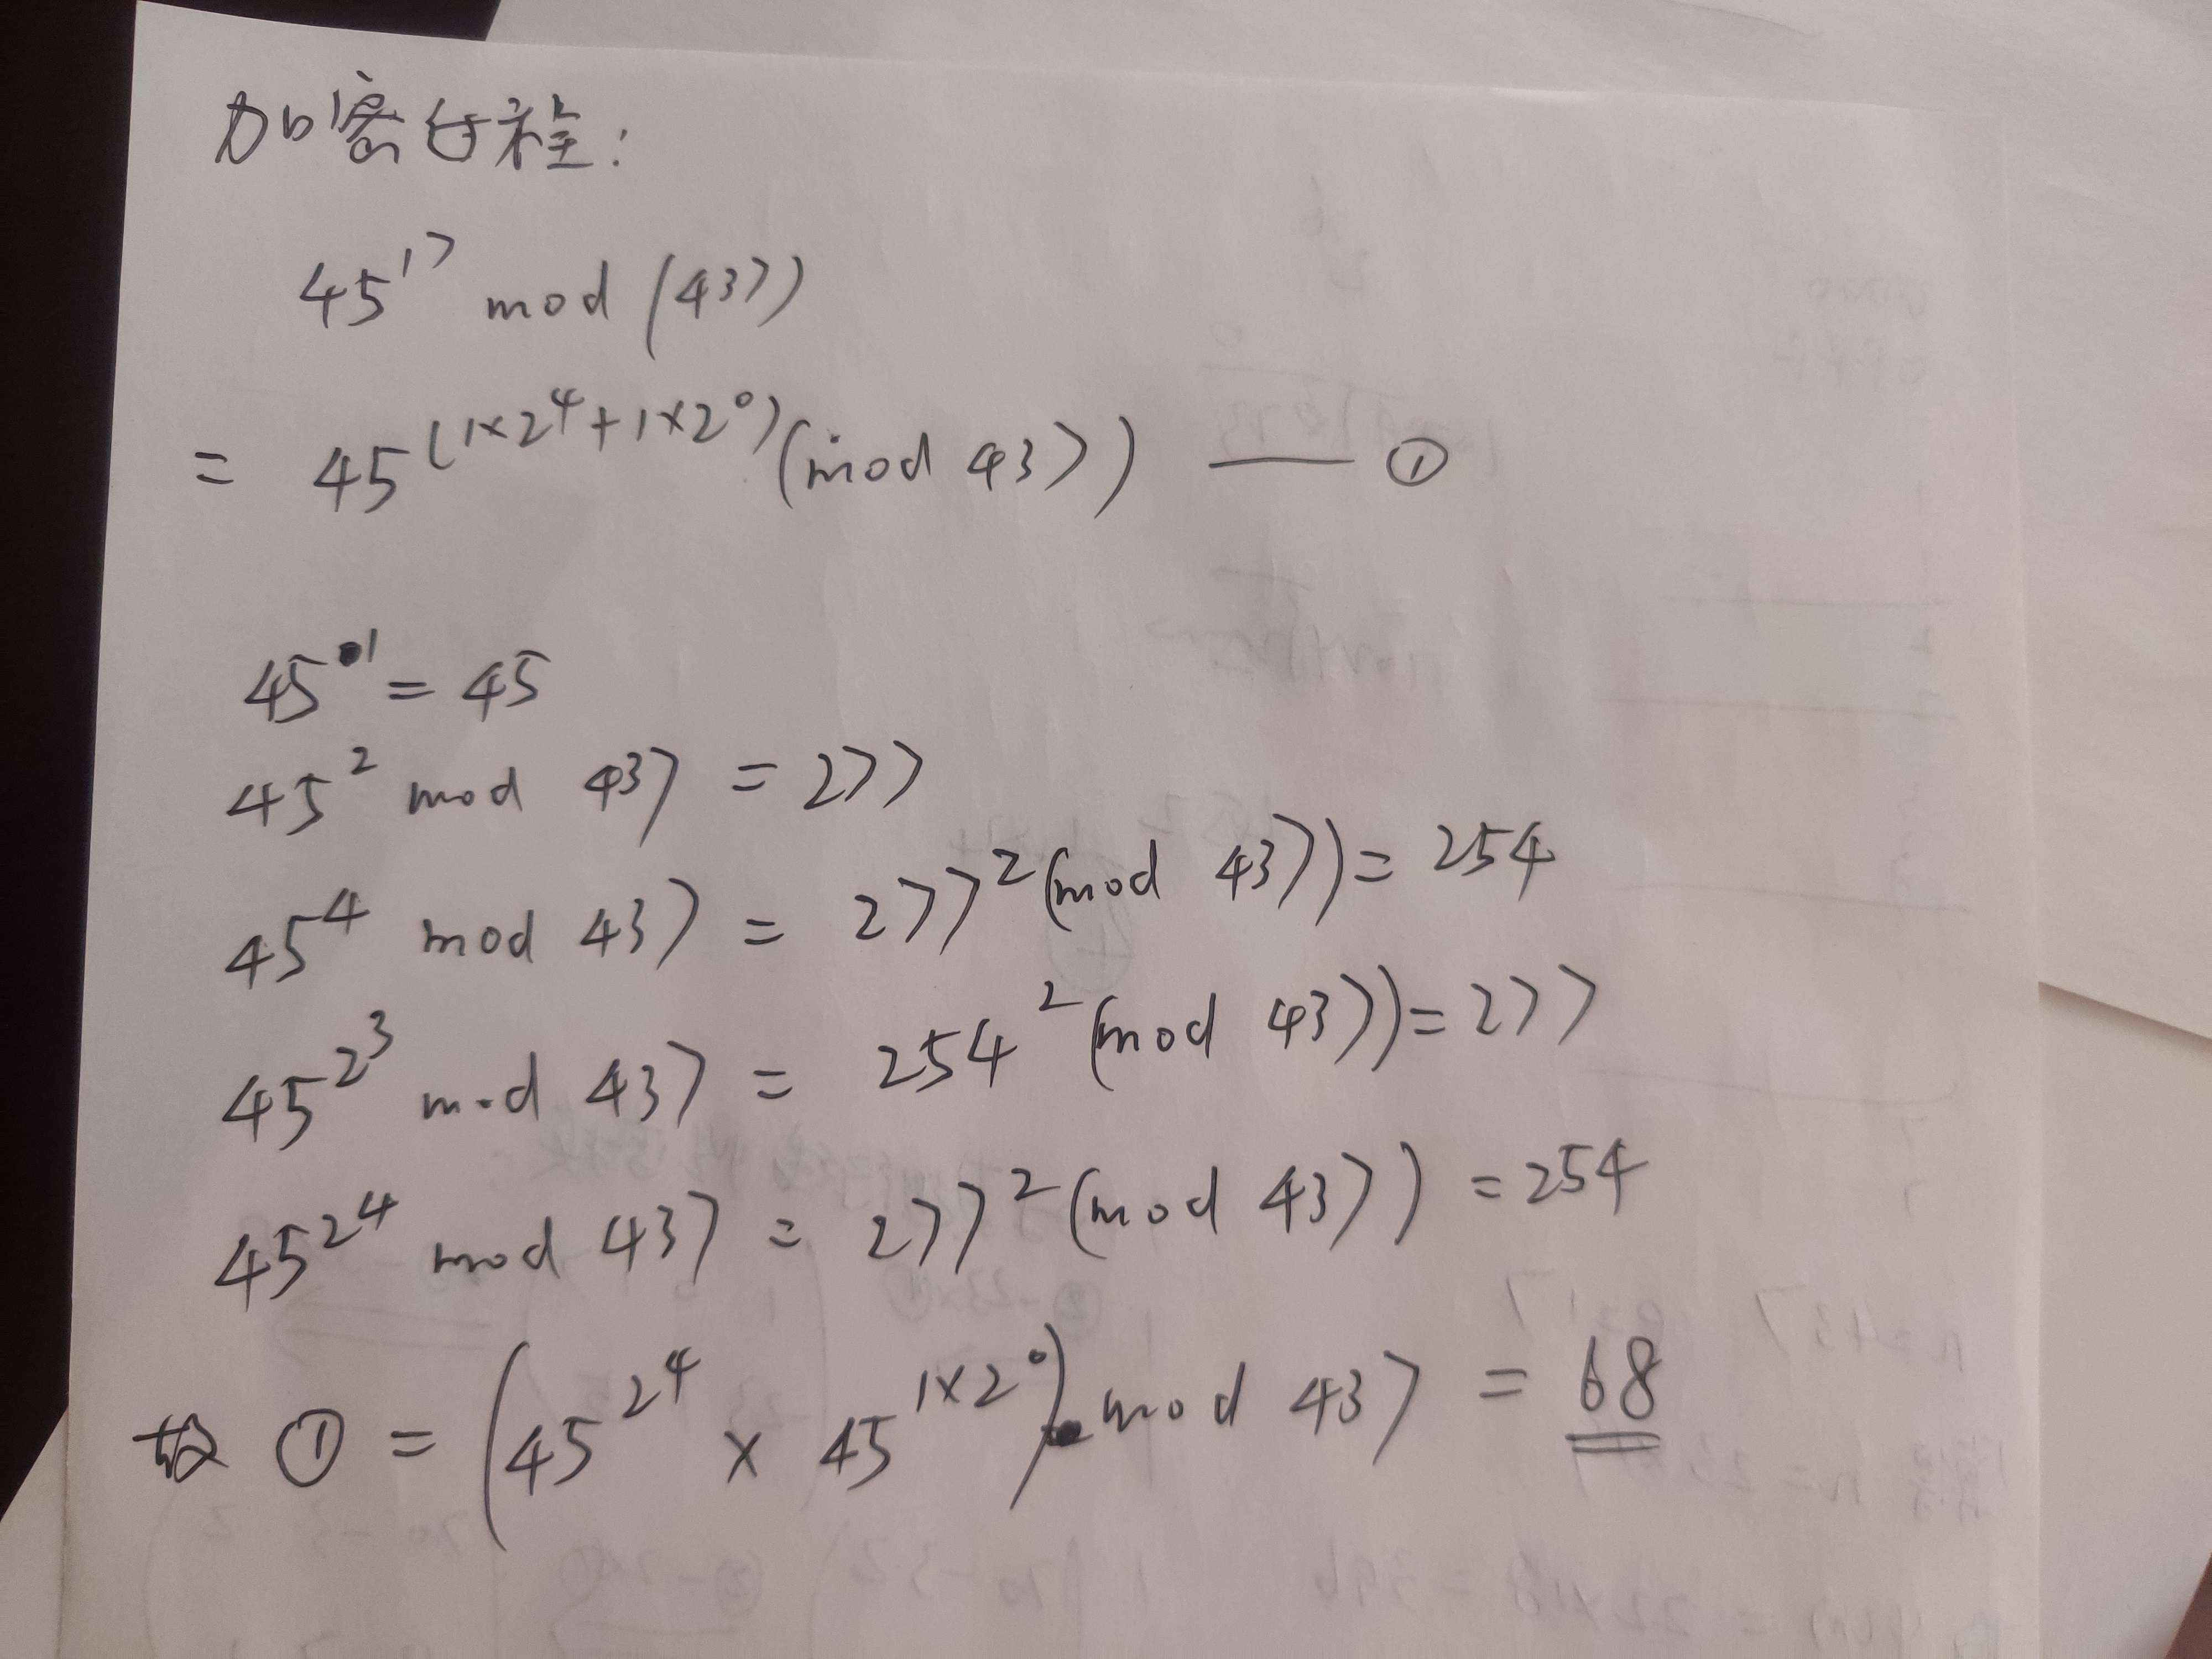 加密过程:
45^17 mod (437)
= 45^(1×2^4+1×2^0) (mod 437) —— ①
45^1 = 45
45^2 mod 437 = 277
45^4 mod 437 = 277^2 (mod 437) = 254
45^2^3 mod 437 = 254^2 (mod 437) = 277
45^2^4 mod 437 = 277^2 (mod 437) = 254
故 ① = (45^2^4 × 45^1×2^0) mod 437 = 68